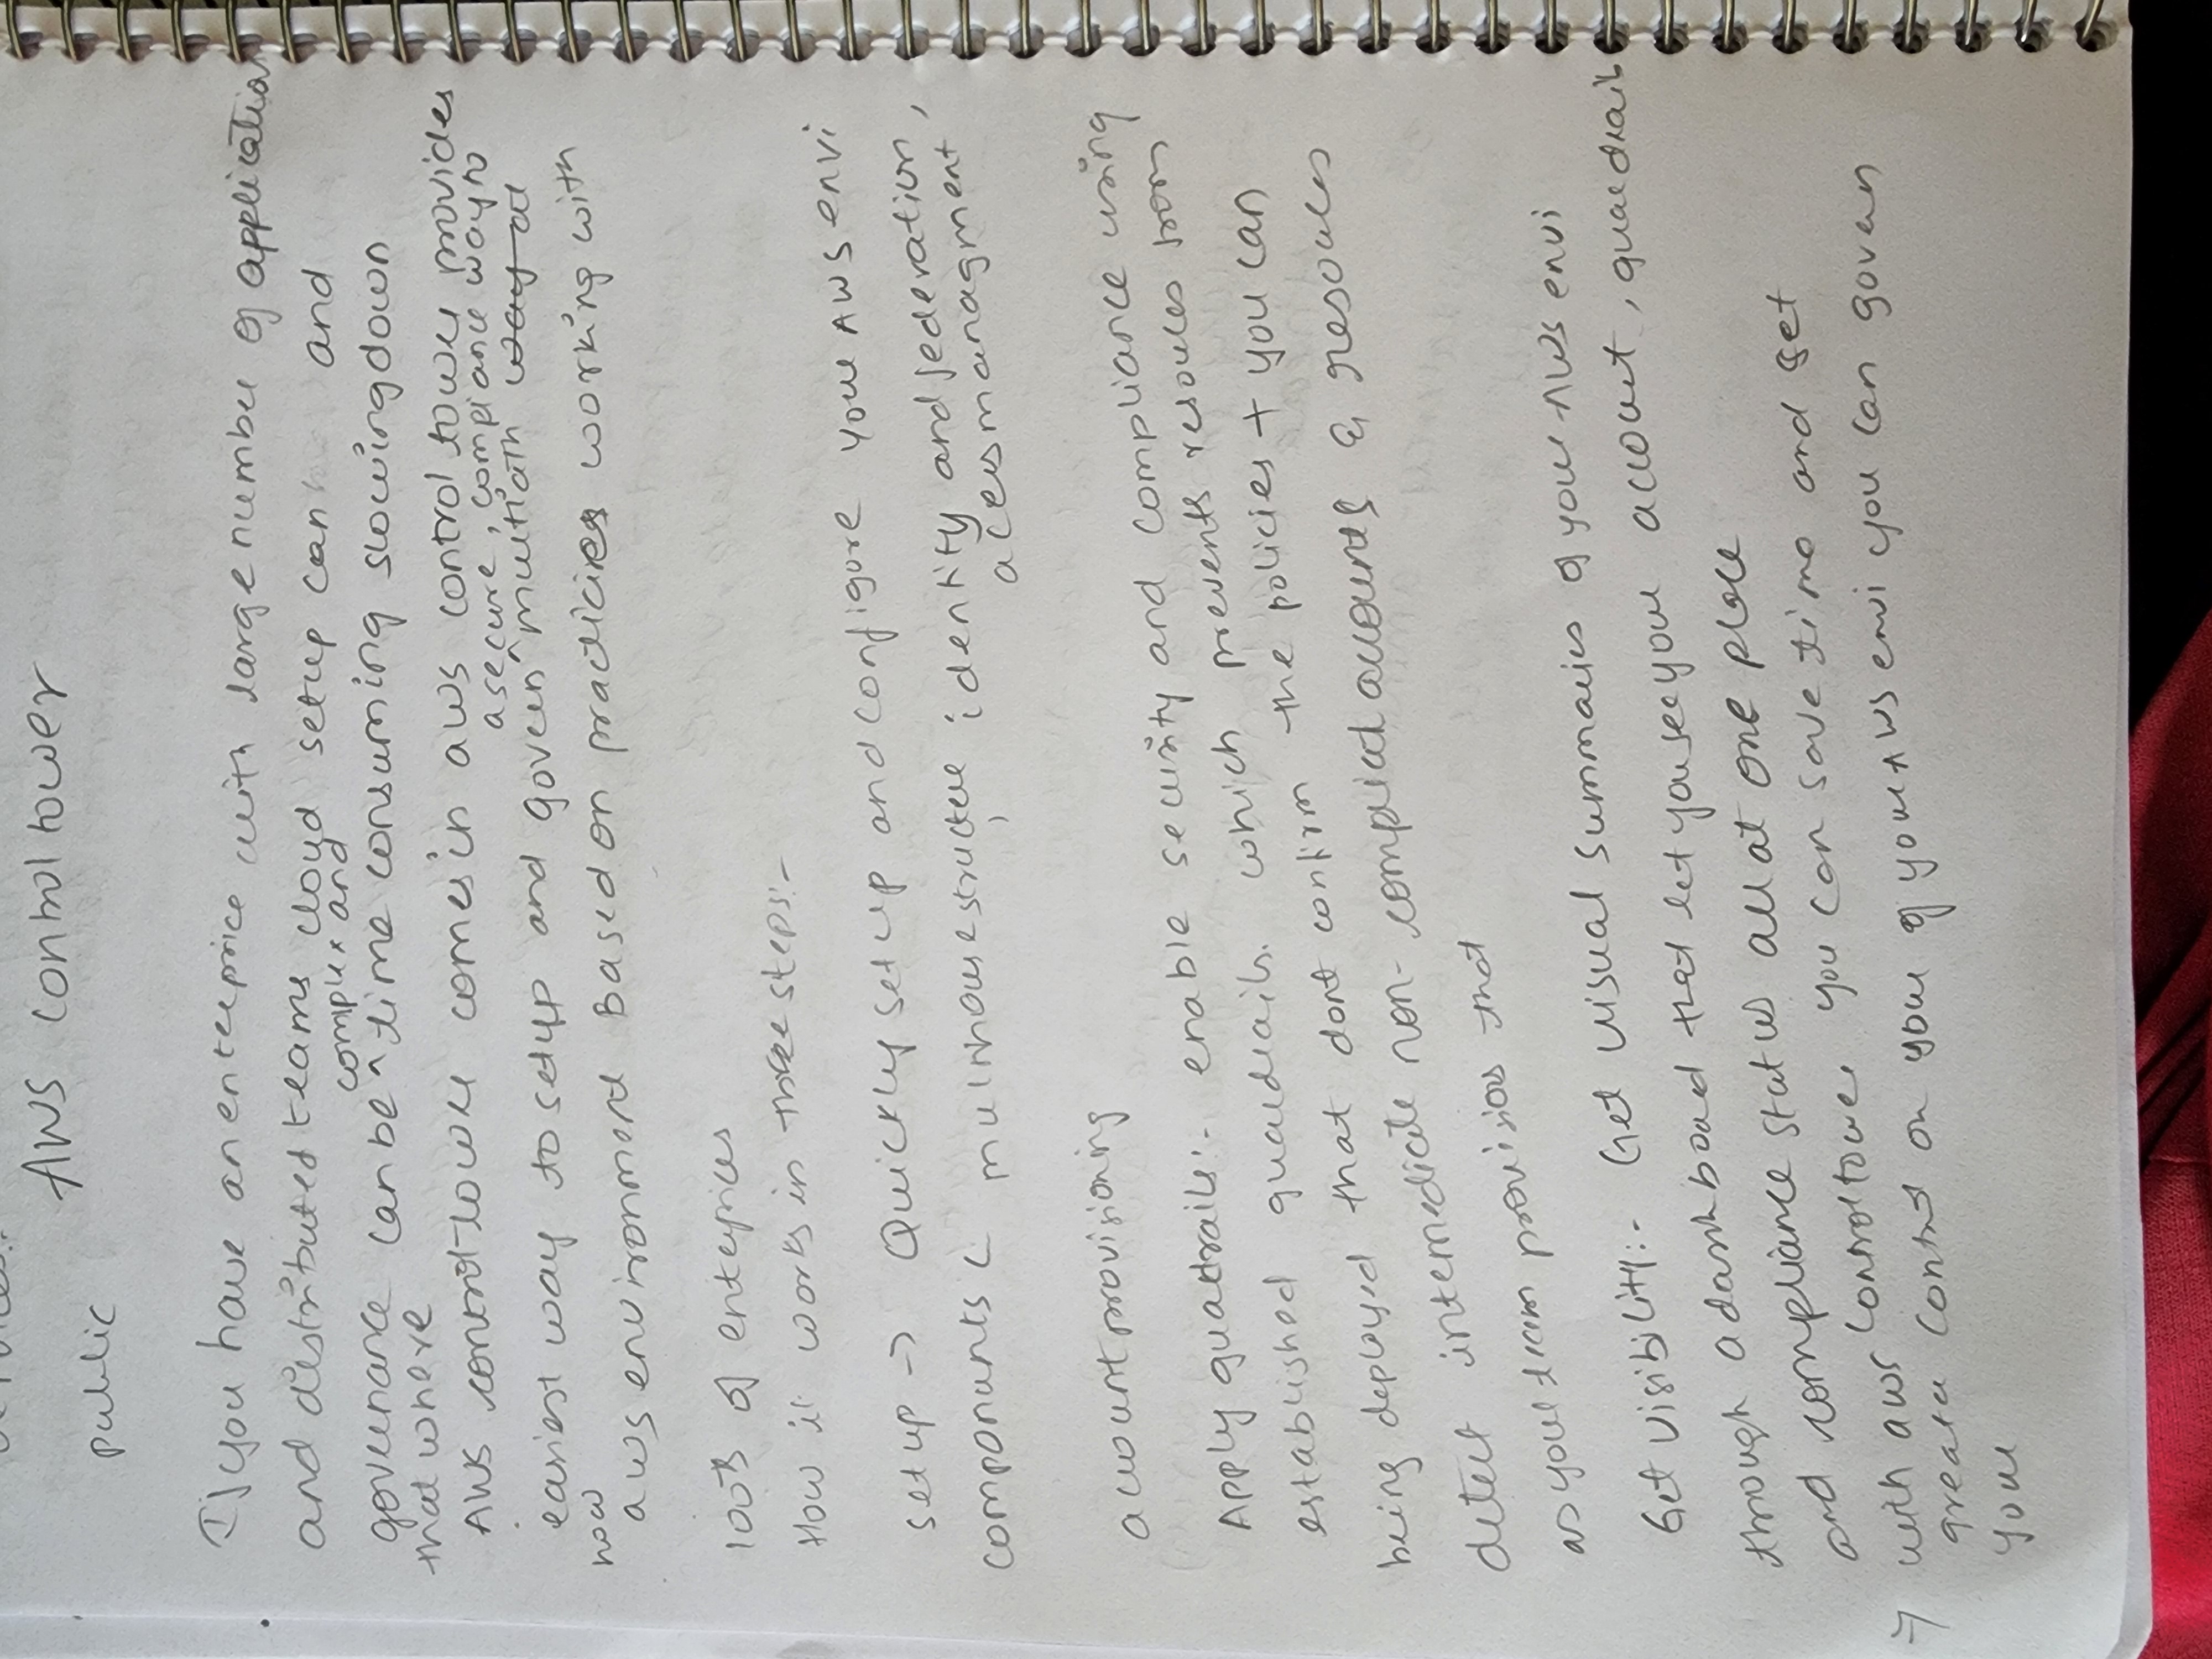 AWS control tower
public
If you have an enterprice with large number of application
and distributed teams cloud setup can and
complex and
governance can be ^ time consuming slowing down
that where
AWS control tower comes in aws control tower provides
a secure, compiance way to
easiest way to setup and govern ^ multi way at
now
aws environment Based on practicies working with
100's of enterprices
How it works in three steps:-
setup -> Quickly set up and configure your AWS envi
componunts structure, identity and federation,
acess managment
account provisioning
Apply guadrails:- enable security and compliance using
established guardrails. which prevents resources from
being deployed that dont confirm the policies + you can
detect intemediate non-compliat accounts & resources
as your team provisions that
Get visibility:- Get visual summaries of your AWS envi
through a dashboard that let you see your account, guardrails
and compliance status all at one place
-> with aws control tower you can save time and get
greater control on your of your AWS envi you can govern
your